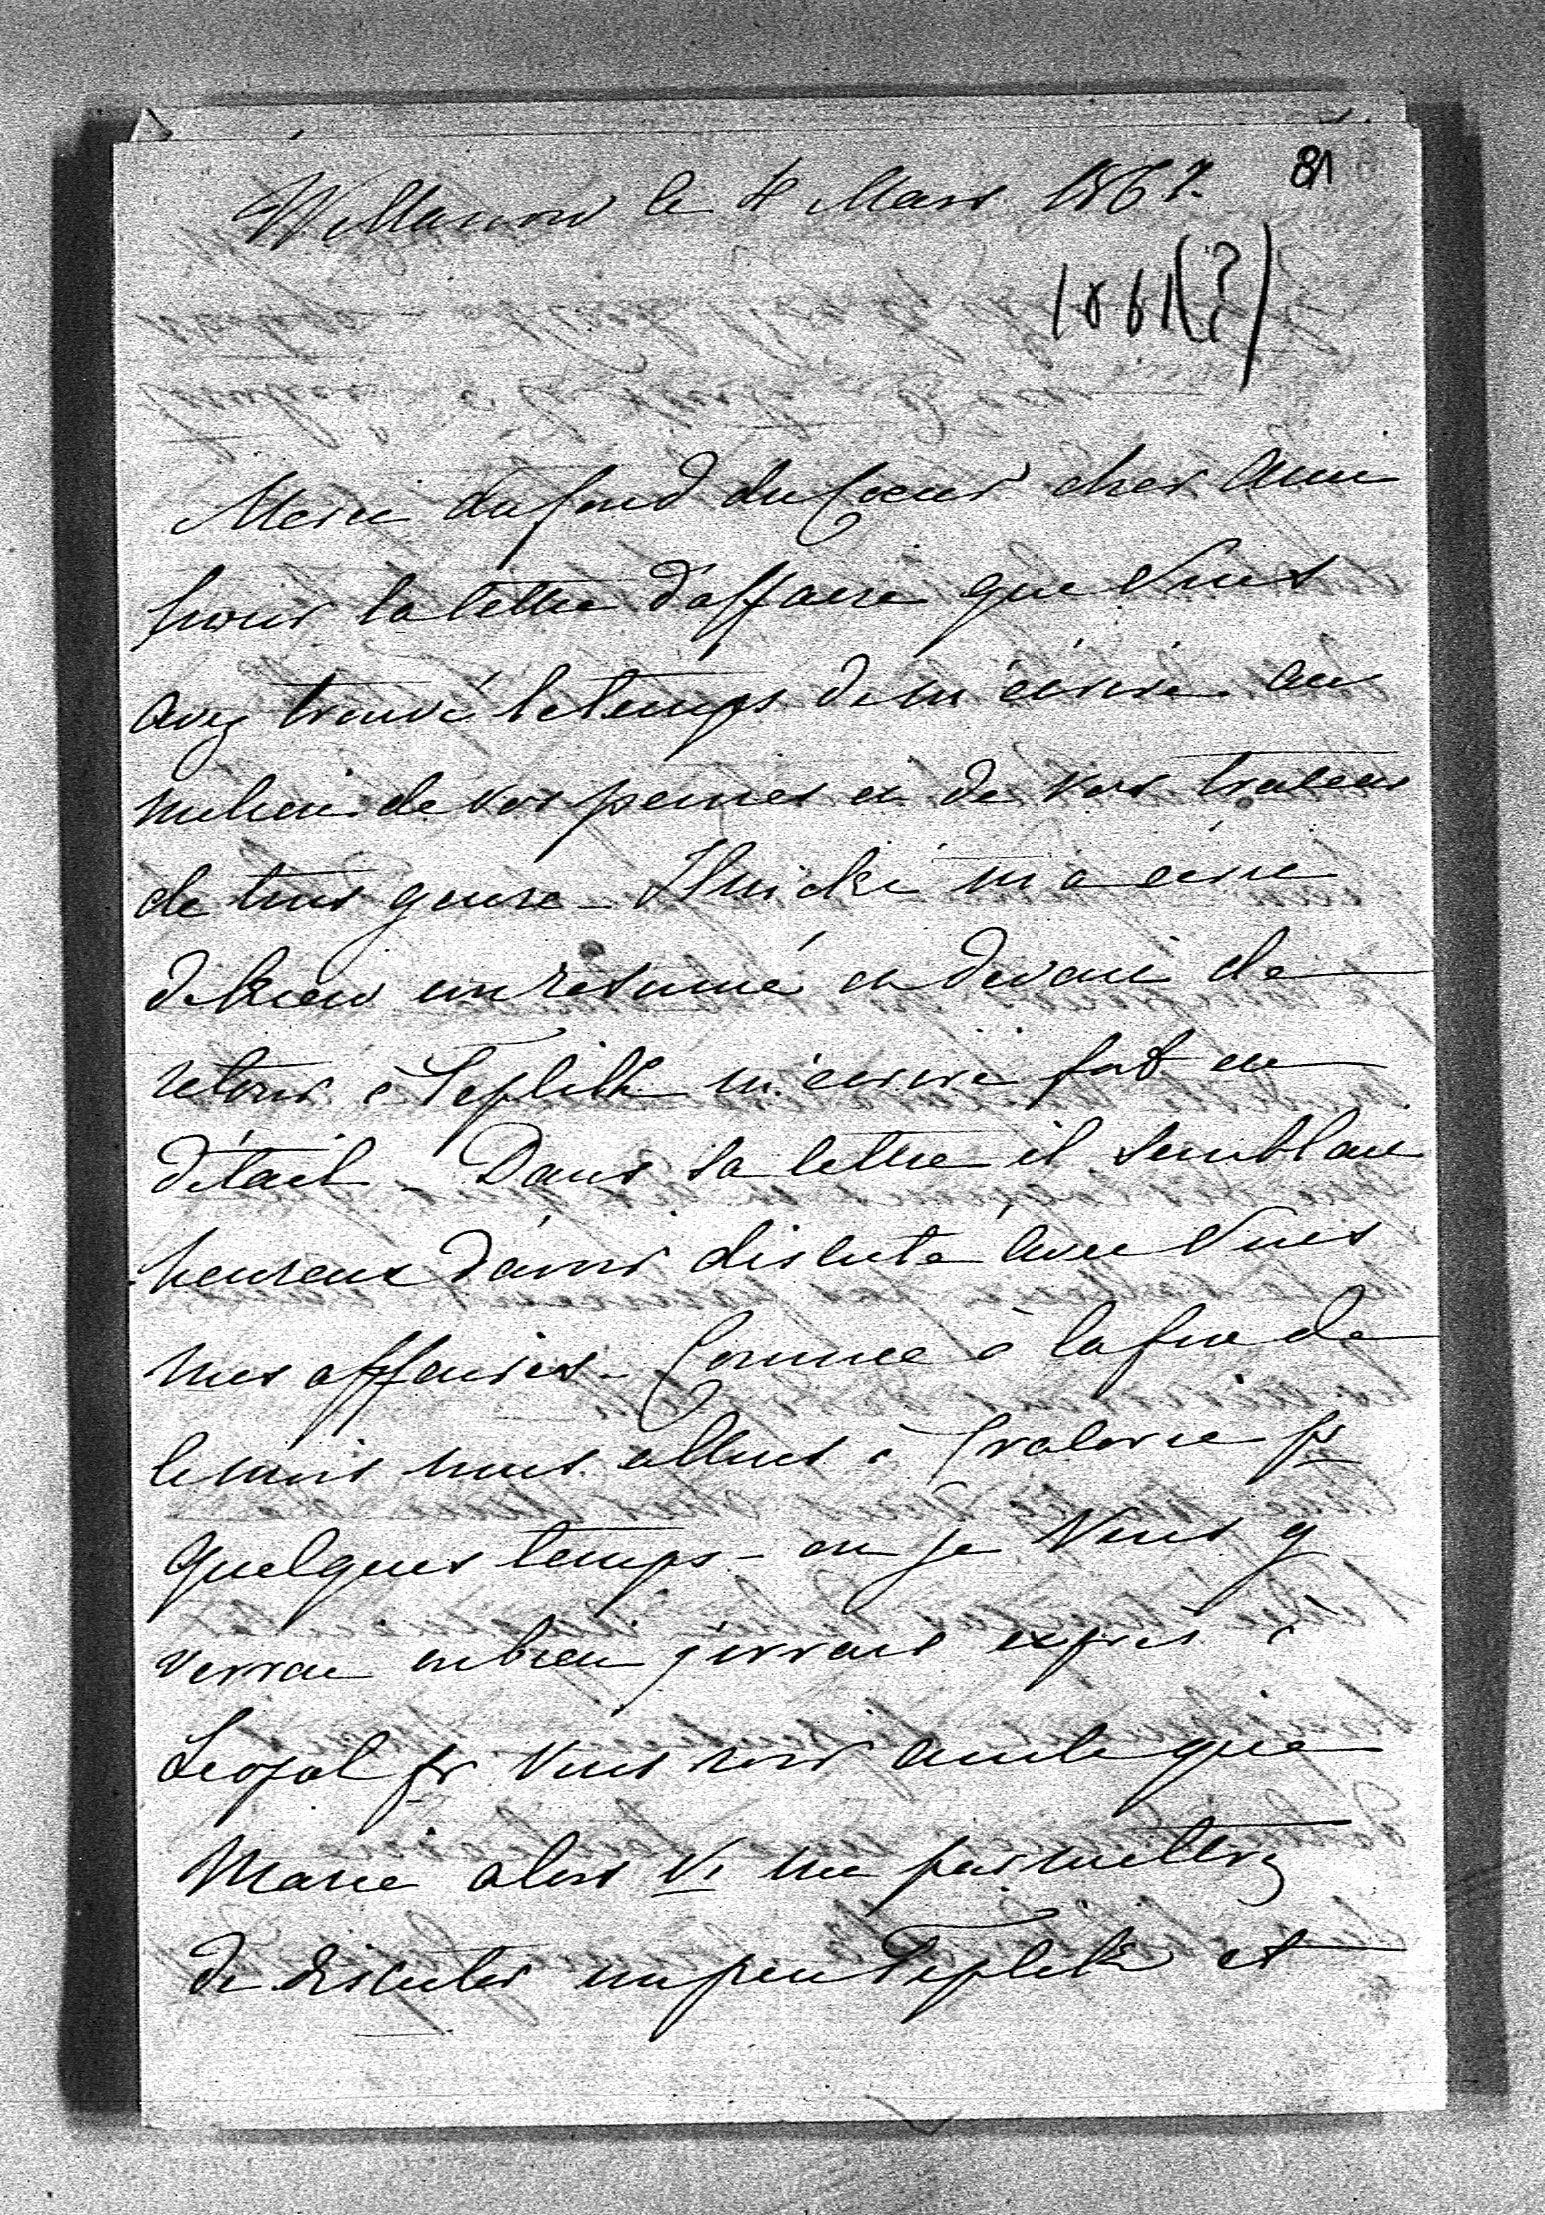 81
Willanow le 4 Mars 1867.
1861(?)
Merci du fond du Coeur cher Ami
pour la lettre d'affaire que Vous
avez trouvé le temps de m'écrire au
milieu de vos peines et de vos tracas
de tous genre _ Ilnicki m'a écrit
de Kiew un résumé et devait de
retour à Teplik m'écrire fort en
détail _ Dans sa lettre il semblait
heureux d'avoir discuté avec Vous
mes affaires _ Comme à la fin de
le mois nous allons à Cralovie pr
quelques temps _ ou je Vous y
verrai ou bien j'irrais exprès à
Leopol pr Vous voir ainsi que
Marie alors Vs me permettrez
de discuter un peu Teplik et